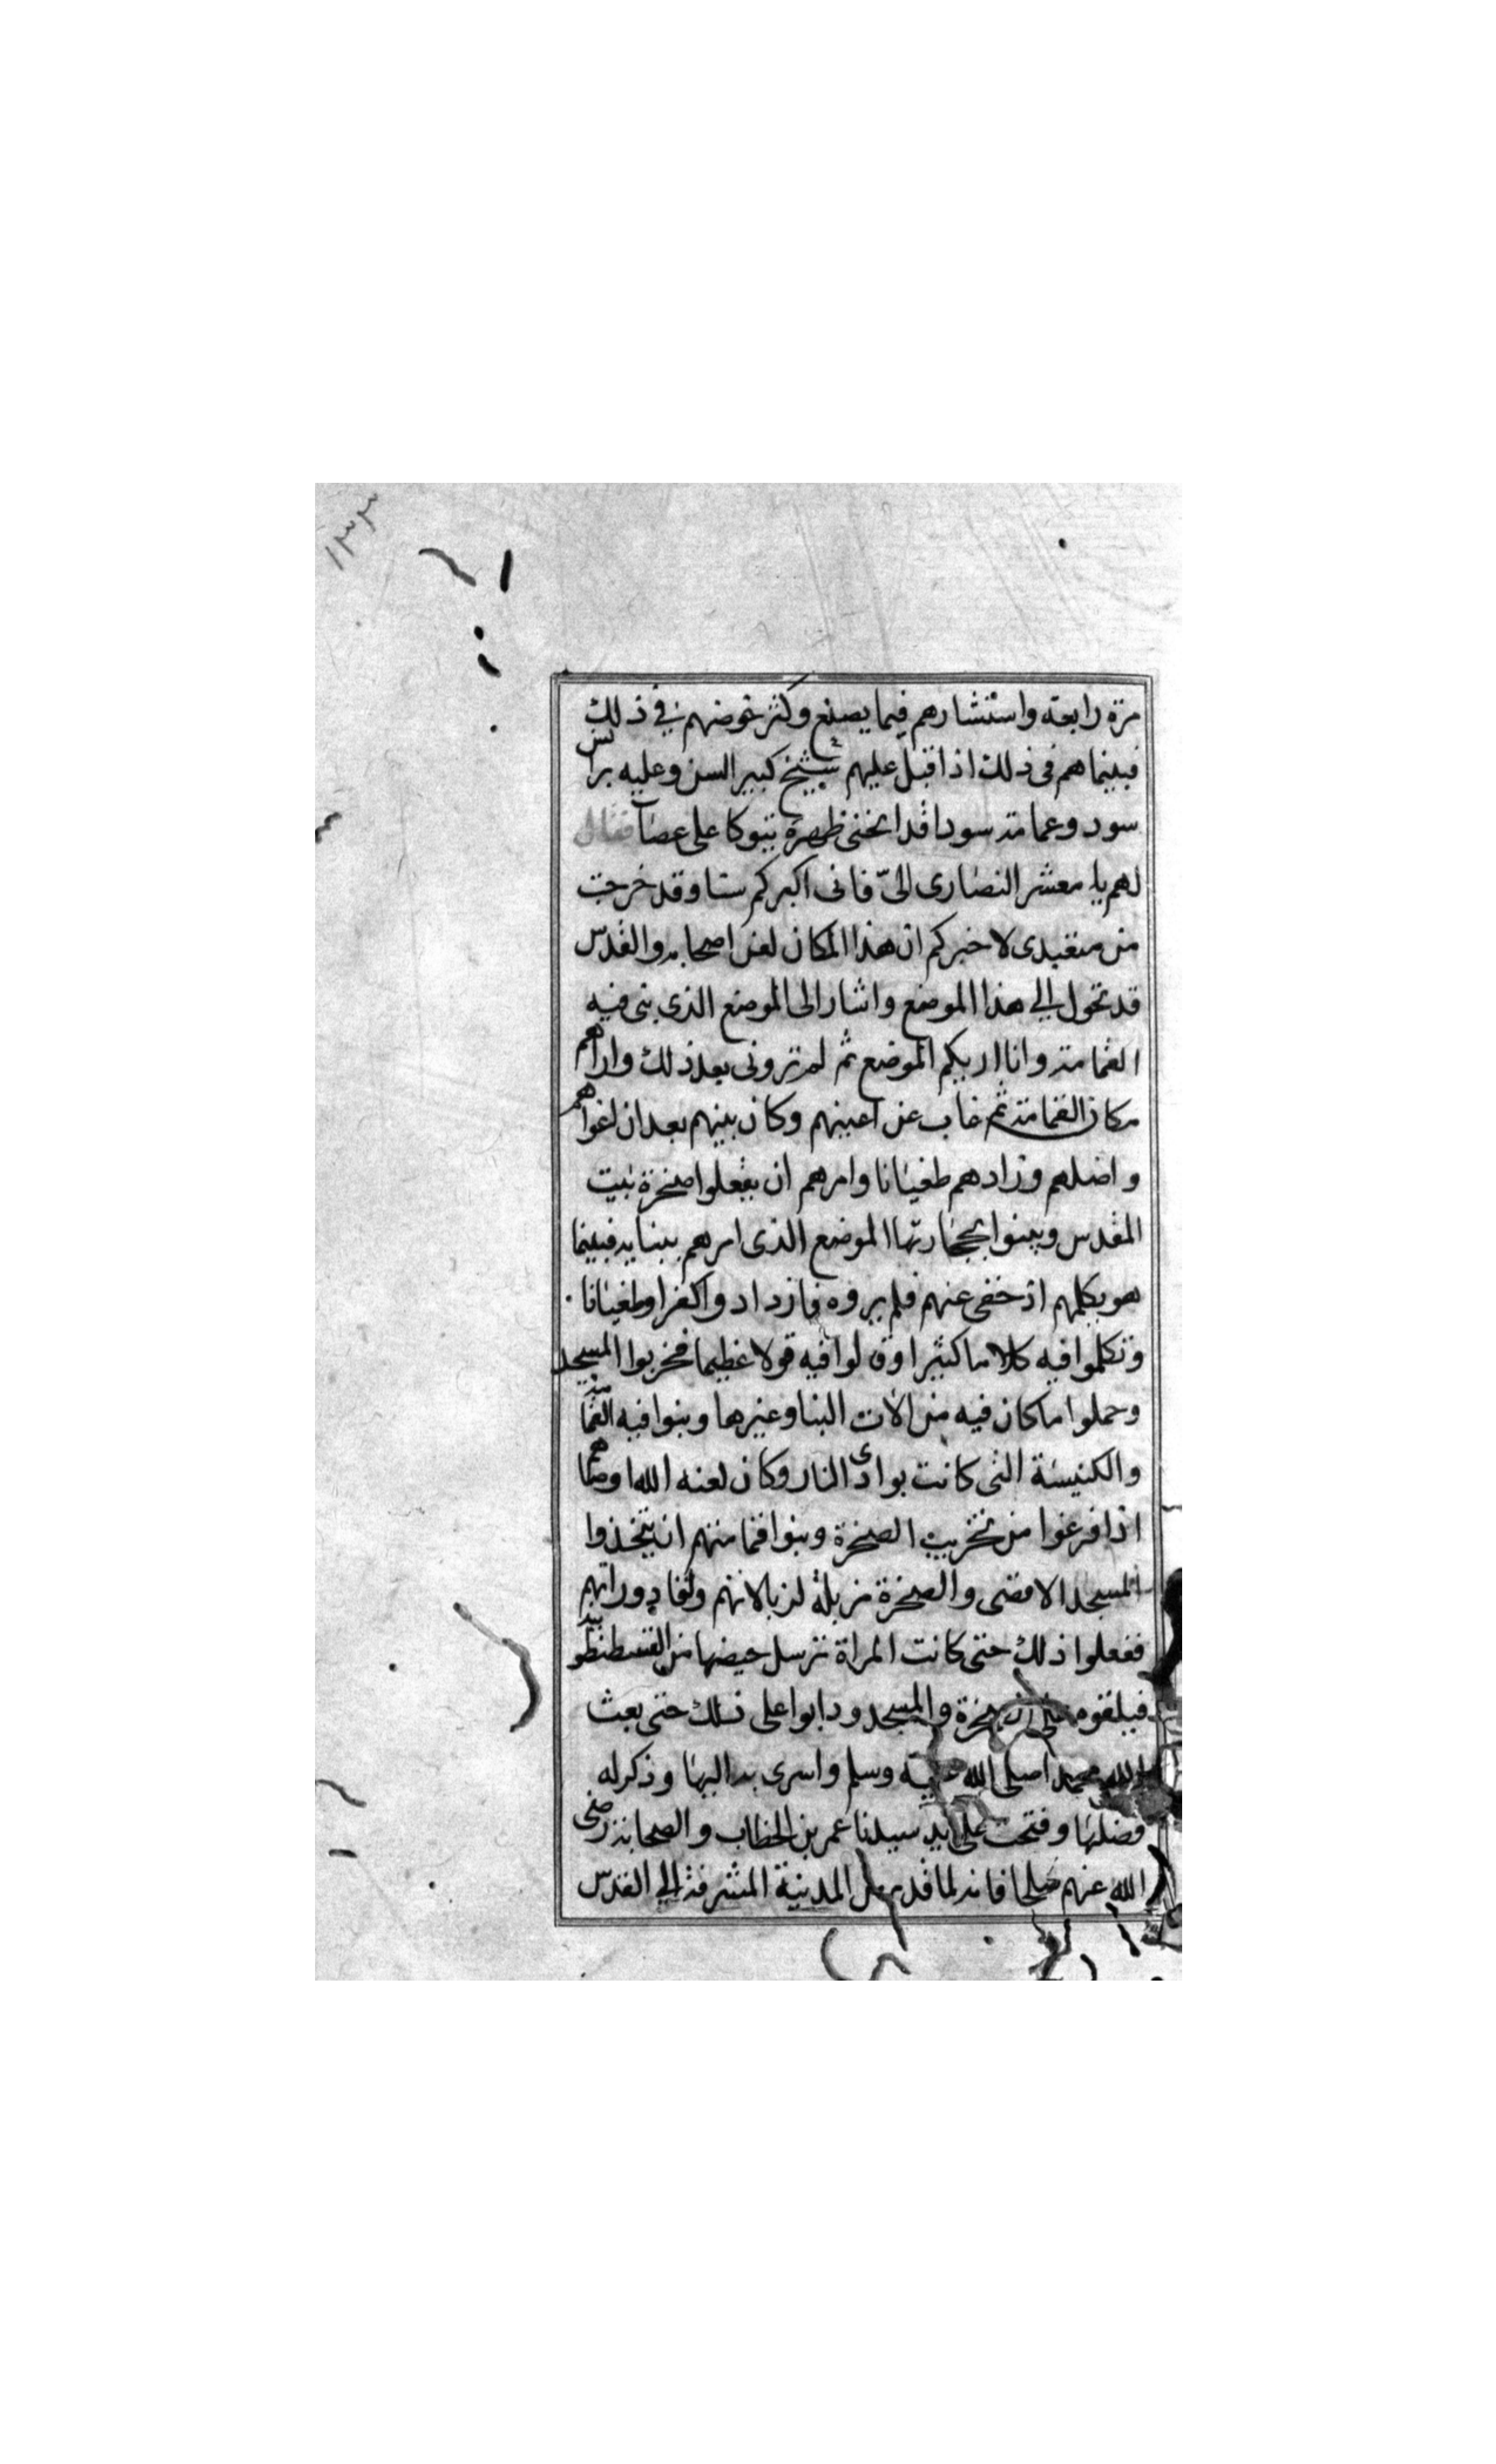 ١٣٣
مرة رابعة واستشارهم فيما يصنع وكثر خوضهم في ذلك
فبينما هم فى ذلك اذا قبل عليهم شيخ كبير السن وعليه برانس
سود وعمامته سودا قد انحنى ظهره يتوكا على عصا فقال
لهم يا معشر النصارى الىّ فانى اكبركم سنا وقد خرجت
من متعبدى لاخبركم ان هذا المكان لعن اصحابه والقدس
قد تحول الى هذا الموضع واشار الى الموضع الذى بنى فيه
القمامة وانا اريكم الموضع ثم لم ترونى بعد ذلك واراهم
مكان القمامة ثم غاب عن اعينهم وكان بينهم بعد ان اغواهم
واضلهم وزادهم طغيانا وامرهم ان يفعلوا صخرة بيت
المقدس ويبنوا بحجارتها الموضع الذى امرهم ببنايه فبينما
هو يكلمهم اذ خفى عنهم فلم يروه فازدادوا كفرا وطغيانا
وتكلموا فيه كلاما كثيرا وقالوا فيه قولا عظيما فخربوا المسجد
وحملوا ما كان فيه من الات البنا وغيرها وبنوا فيه القمامة
والكنيسة التى كانت بوادى النار وكان لعنه الله اوصاهم
اذا فرغوا من تخريب الصخرة وبنوا قمامتهم ان يتخذوا
المسجد الاقصى والصخرة مزبلة لزبالاتهم ولقاذوراتهم
ففعلوا ذلك حتى كانت المراة ترسل حيضها من القسطنطونية
فيلقوه على الصخرة والمسجد ودابوا على ذلك حتى بعث
الله محمدا صلى الله عليه وسلم واسرى به اليها وذكر له
فضلها وفتحت على يد سيدنا عمر بن الخطاب والصحابة رضى
الله عنهم صلحا فانه لما قدم من المدينة المشرفة الى القدس